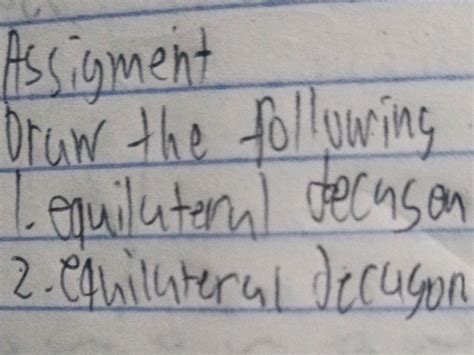 Assigment
Draw the following
1. equilateral decagon
2. equilateral decagon